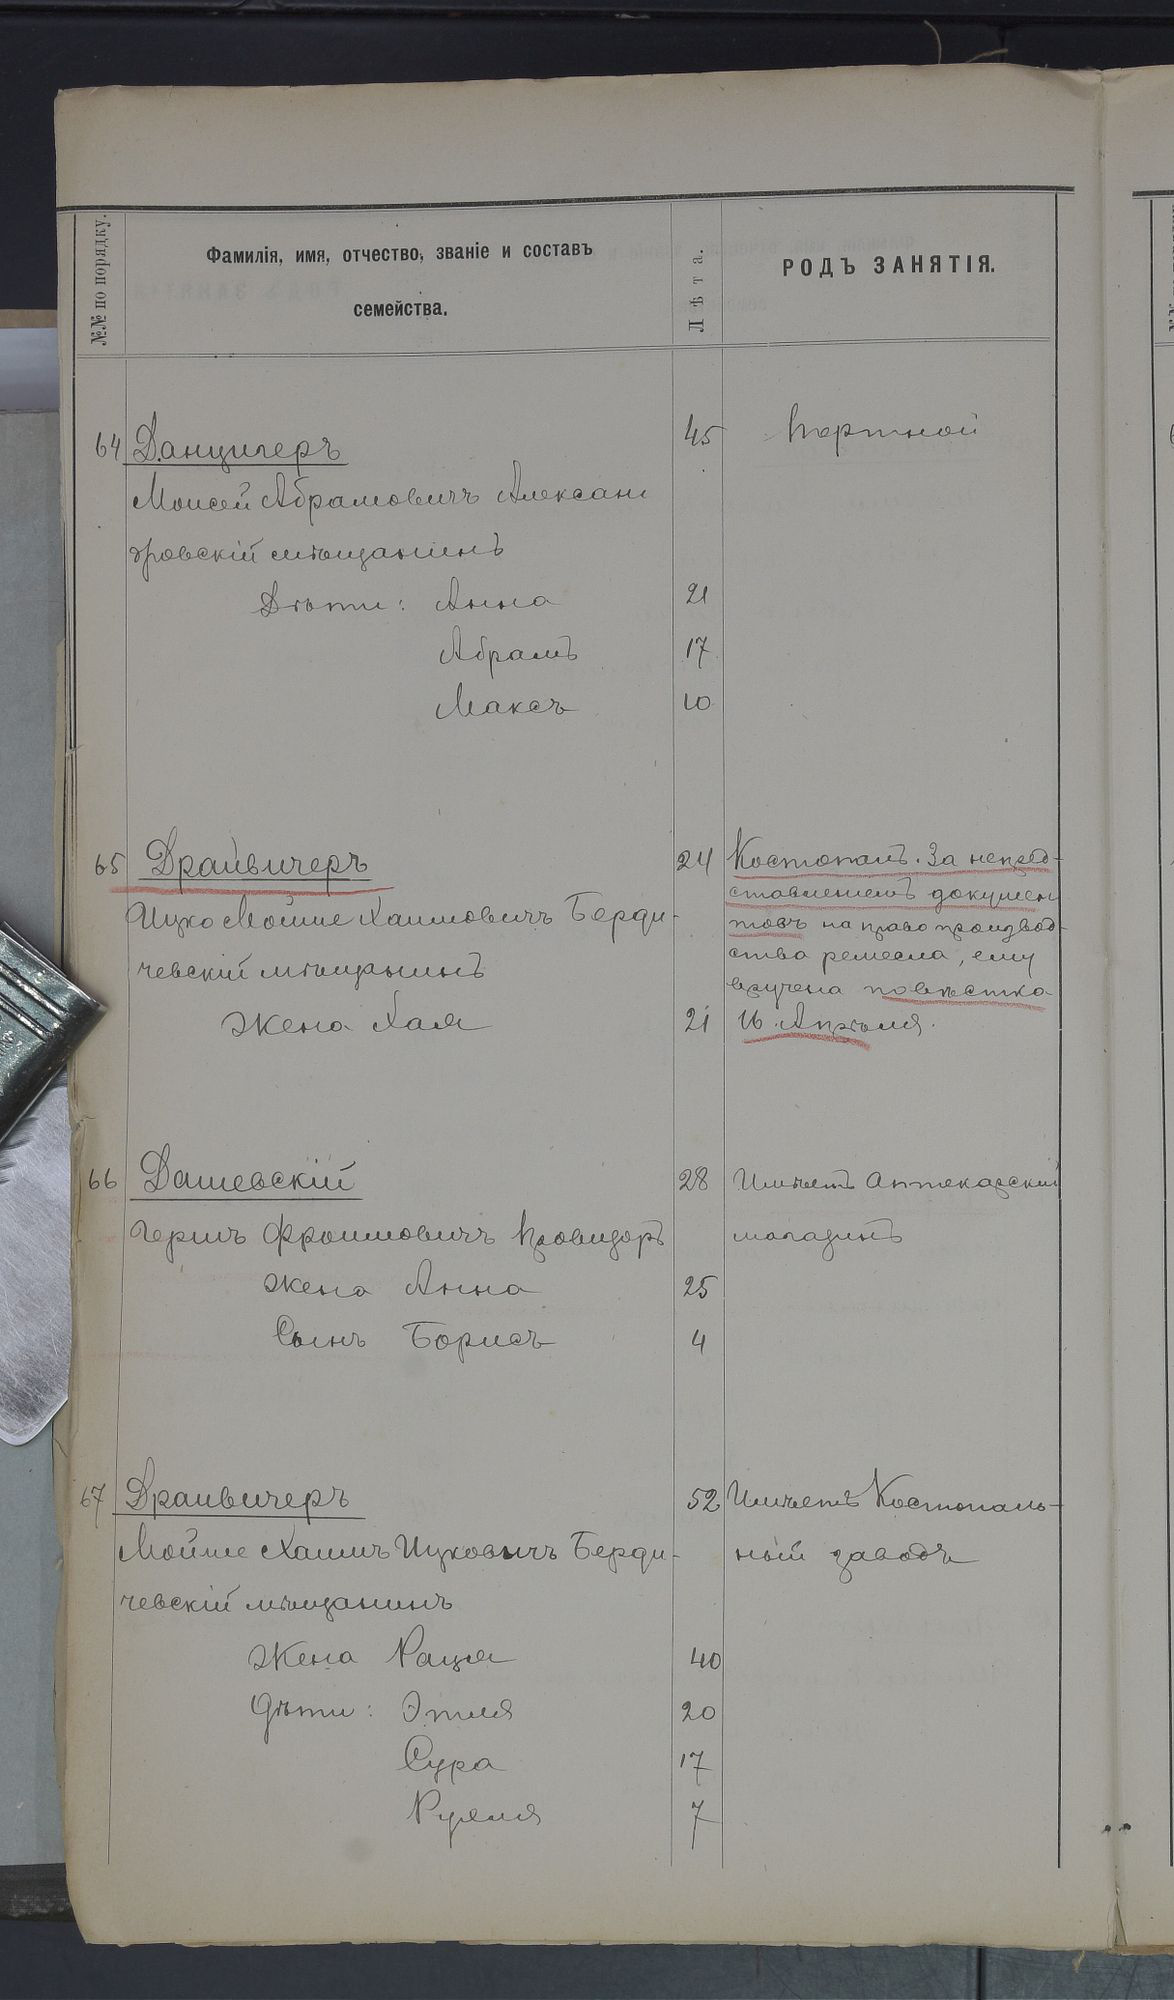 №№ по порядку.
Фамилія, имя, отчество, званіе и составъ
семейства.
Лѣта.
РОДЪ ЗАНЯТІЯ.
64 Данцигеръ 45 Портной
Моисей Абрамовичъ Алексан
дровскій мѣщанинъ
Дѣти: Анна 21
Абрамъ 17
Максъ 10
65 Драйвичеръ 24 Костопалъ. За непред-
ставленіемъ докумен
Ицко Мойше Хаимовичъ Берди- товъ на право производ-
чевскій мѣщанинъ ства ремесла, ему
вручена повѣстка
Жена Хая 21 16 Апрѣля.
66 Дашевскій 28 Имѣетъ Аптекарскій
Гершъ Фроимовичъ Провизоръ магазинъ
Жена Анна 25
Сынъ Борисъ 4
67 Драивичеръ 52 Имѣетъ Костопаль-
Мойше Хаимъ Ицковичъ Берди- ный заводъ
чевскій мѣщанинъ
Жена Рация 40
Дѣти: Этля 20
Сура 17
7